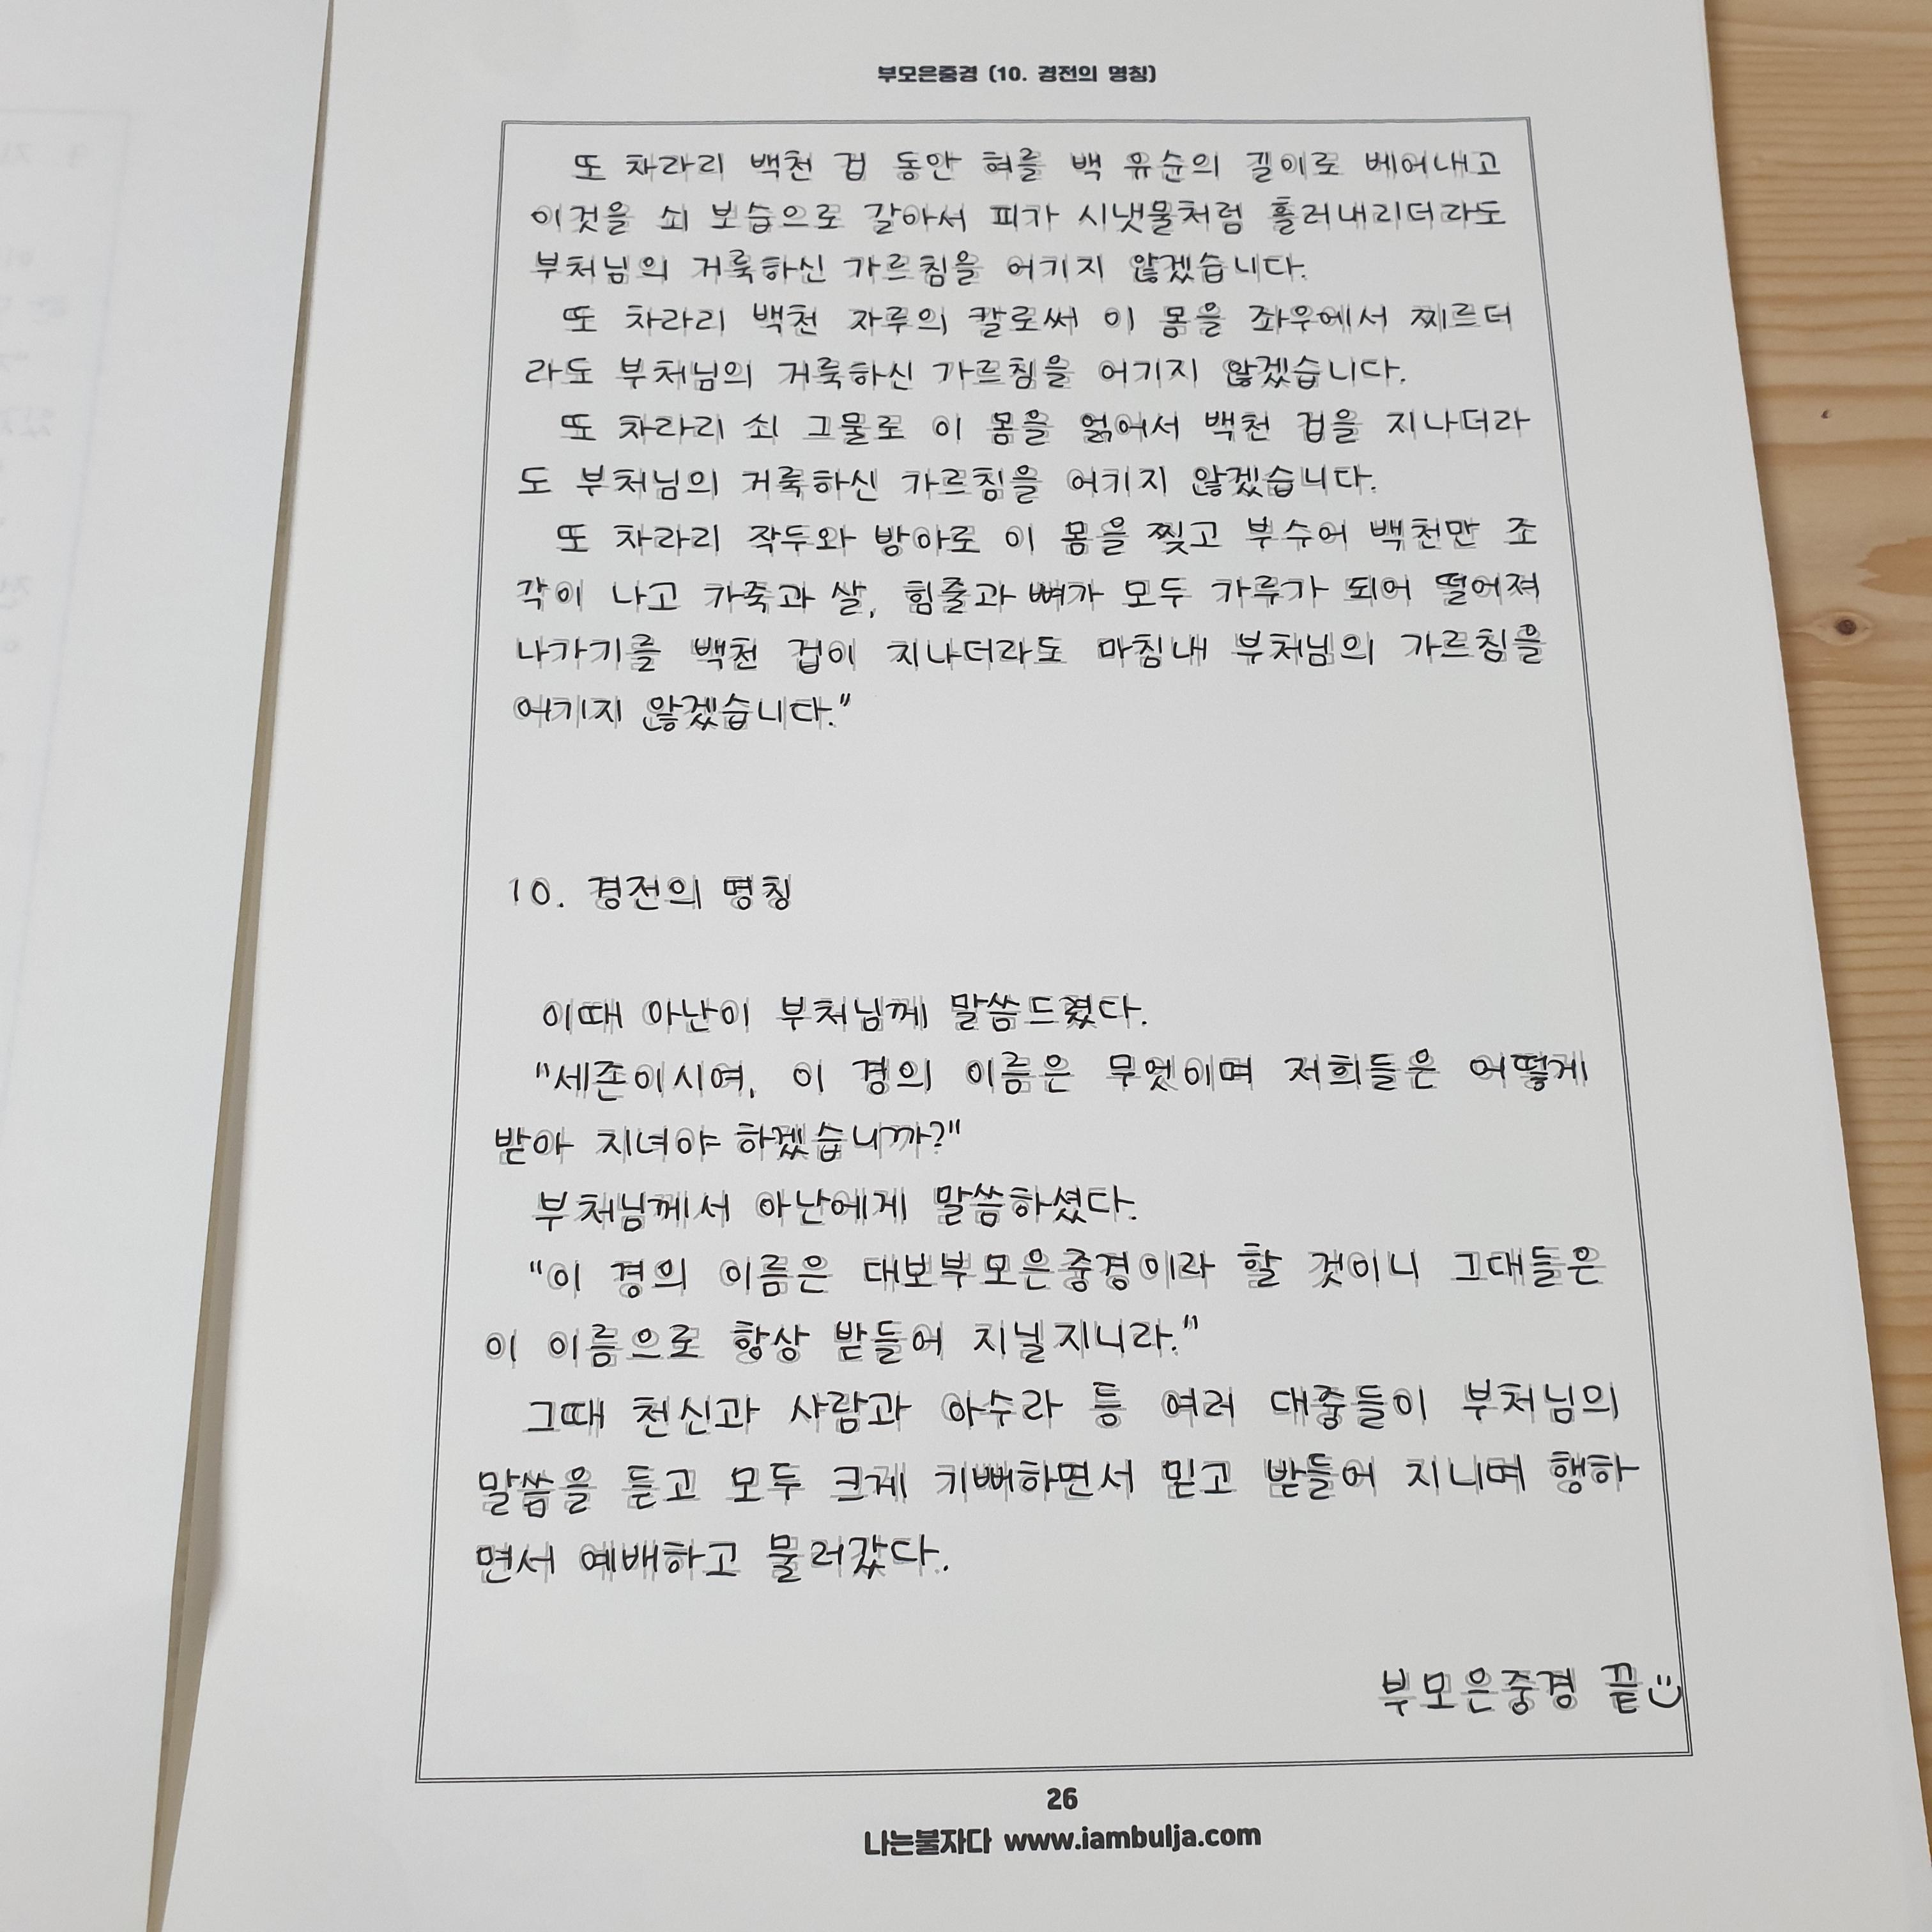 부모은중경 (10. 경전의 명칭)
또 차라리 백천 겁 동안 혀를 백 유순의 길이로 베어내고
이것을 쇠 보습으로 갈아서 피가 시냇물처럼 흘러내리더라도
부처님의 거룩하신 가르침을 어기지 않겠습니다.
또 차라리 백천 자루의 칼로써 이 몸을 좌우에서 찌르더
라도 부처님의 거룩하신 가르침을 어기지 않겠습니다.
또 차라리 쇠 그물로 이 몸을 얽어서 백천 겁을 지나더라
도 부처님의 거룩하신 가르침을 어기지 않겠습니다.
또 차라리 작두와 방아로 이 몸을 찢고 부수어 백천만 조
각이 나고 가죽과 살, 힘줄과 뼈가 모두 가루가 되어 떨어져
나가기를 백천 겁이 지나더라도 마침내 부처님의 가르침을
어기지 않겠습니다."
10. 경전의 명칭
이때 아난이 부처님께 말씀드렸다.
"세존이시여, 이 경의 이름은 무엇이며 저희들은 어떻게
받아 지녀야 하겠습니까?"
부처님께서 아난에게 말씀하셨다.
"이 경의 이름은 대보부모은중경이라 할 것이니 그대들은
이 이름으로 항상 받들어 지닐지니라."
그때 천신과 사람과 아수라 등 여러 대중들이 부처님의
말씀을 듣고 모두 크게 기뻐하면서 믿고 받들어 지니며 행하
면서 예배하고 물러갔다.
부모은중경 끝
26
나는불자다 www.iambulja.com